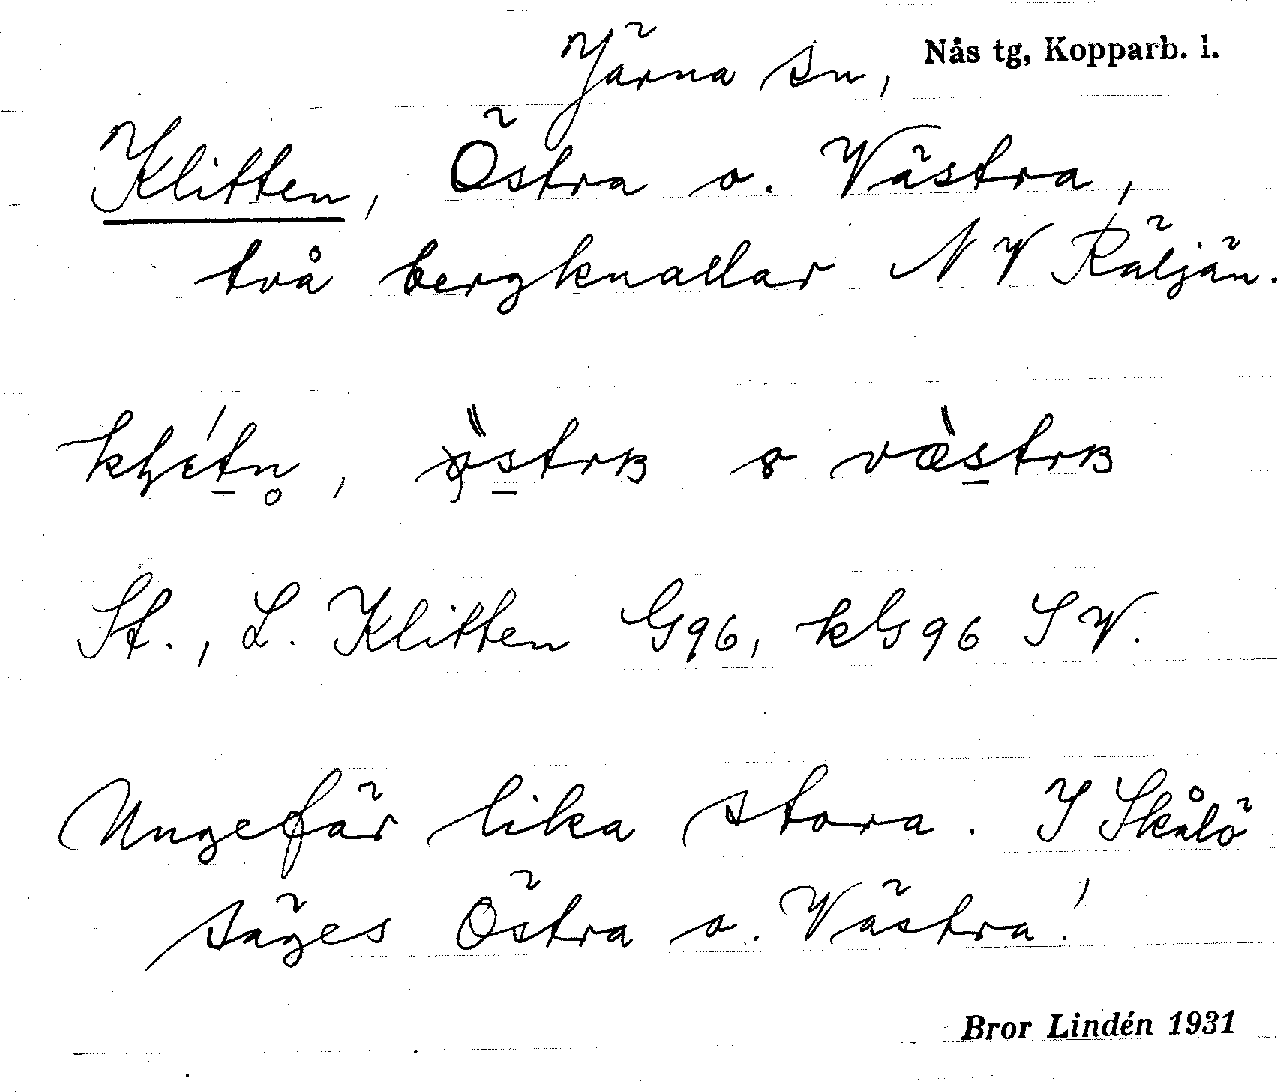 Järna sn, Nås tg, Kopparb. l.
Klitten, Östra o. Västra,
två bergknallar NV Räljän.
östrʙ o væ̀strʙ
St., L. Klitten G96, kG96 SV.
Ungefär lika stora. I Skålö
säges Östra o. Västra!
Bror Lindén 1931